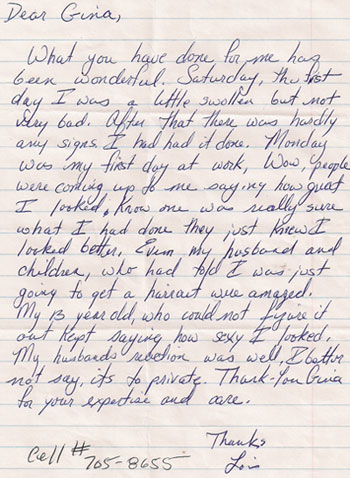 Dear Gina,
What you have done for me has
been wonderful. Saturday, the first
day I was a little swollen but not
very bad. After that there was hardly
any signs I had had it done. Monday
was my first day at work, Wow, people
were coming up to me saying how great
I looked. Know one was really sure
what I had done they just knew I
looked better. Even my husband and
children, who had told I was just
going to get a haircut were amazed.
My 13 year old, who could not figure it
out kept saying how sexy I looked.
My husbands reaction was well, I better
not say, its to private. Thank-You Gina
for your expertise and care.
Thanks
Lois
Cell # 705-8655